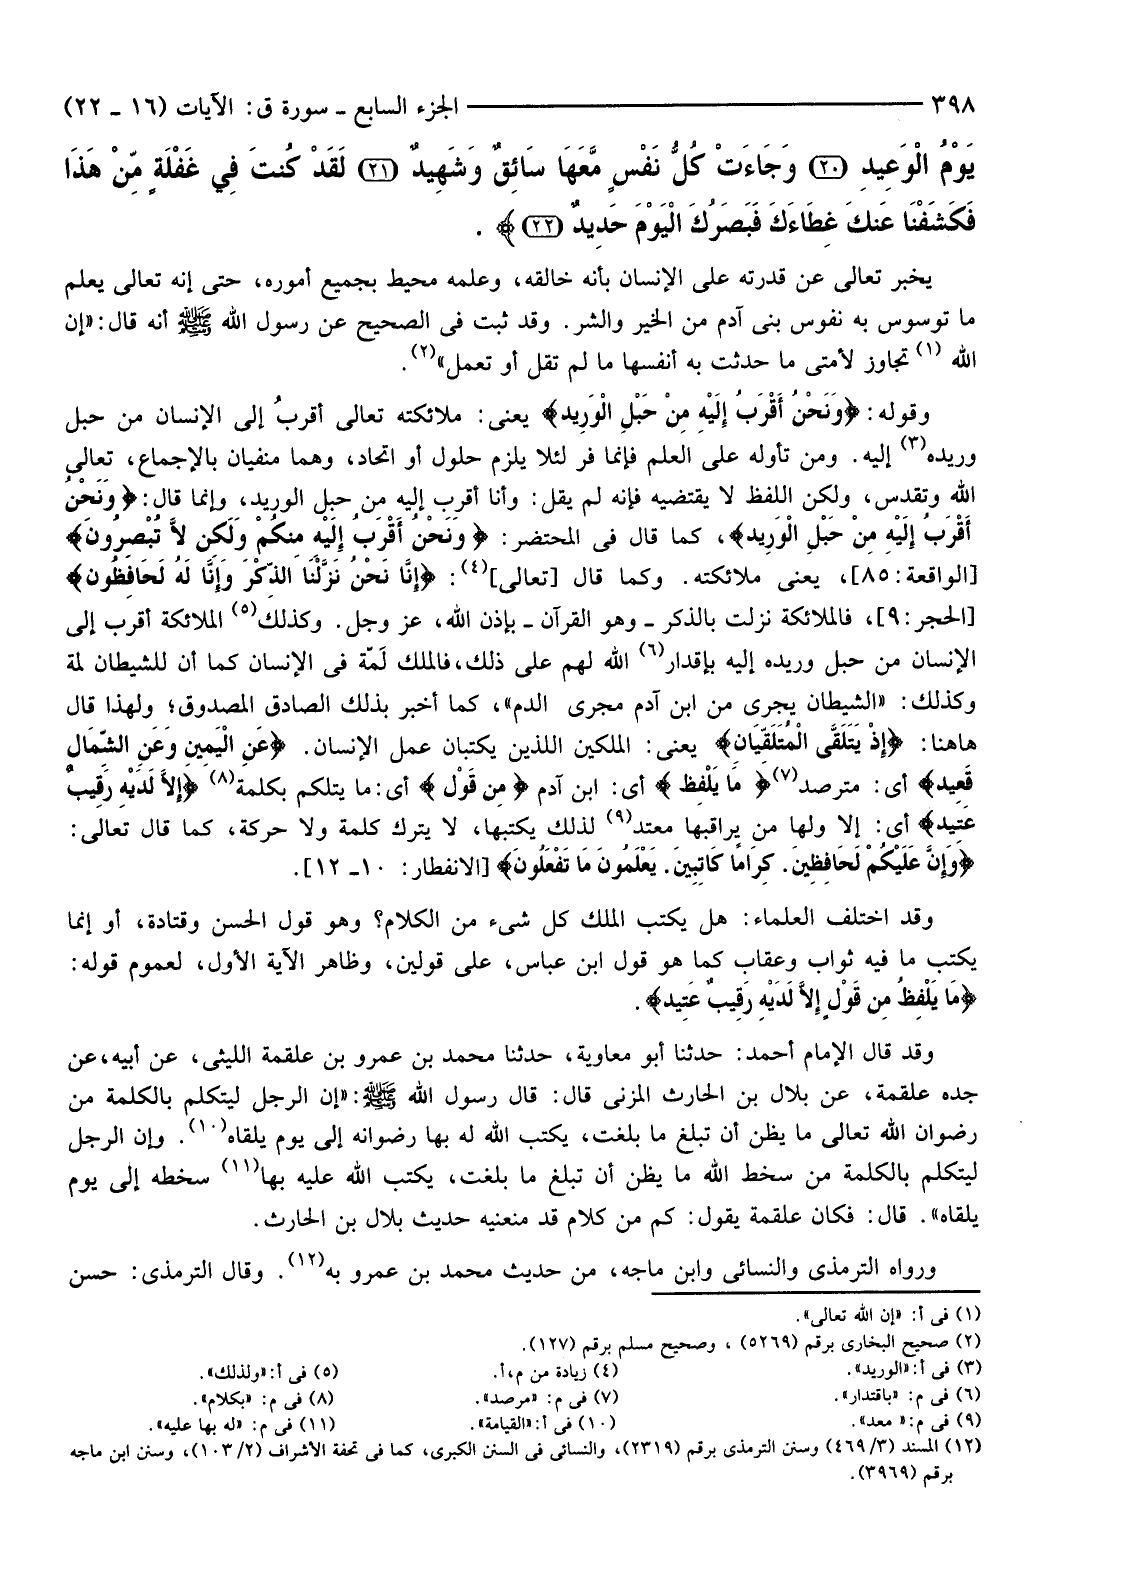 ٣٩٨ ــــــــــــــــــــــــ الجزء السابع ـ سورة ق: الآيات (١٦ ـ ٢٢)
يَوْمُ الْوَعِيدِ (٢٠) وَجَاءَتْ كُلُّ نَفْسٍ مَّعَهَا سَائِقٌ وَشَهِيدٌ (٢١) لَقَدْ كُنتَ فِي غَفْلَةٍ مِّنْ هَذَا
فَكَشَفْنَا عَنكَ غِطَاءَكَ فَبَصَرُكَ الْيَوْمَ حَدِيدٌ (٢٢)﴾ .
يخبر تعالى عن قدرته على الإنسان بأنه خالقه، وعلمه محيط بجميع أموره، حتى إنه تعالى يعلم
ما توسوس به نفوس بنى آدم من الخير والشر. وقد ثبت فى الصحيح عن رسول الله ﷺ أنه قال:«إن
الله (١) تجاوز لأمتى ما حدثت به أنفسها ما لم تقل أو تعمل»(٢).
وقوله: ﴿وَنَحْنُ أَقْرَبُ إِلَيْهِ مِنْ حَبْلِ الْوَرِيدِ﴾ يعنى: ملائكته تعالى أقربُ إلى الإنسان من حبل
وريده(٣) إليه. ومن تأوله على العلم فإنما فر لئلا يلزم حلول أو اتحاد، وهما منفيان بالإجماع، تعالى
الله وتقدس، ولكن اللفظ لا يقتضيه فإنه لم يقل: وأنا أقرب إليه من حبل الوريد، وإنما قال:﴿ وَنَحْنُ
أَقْرَبُ إِلَيْهِ مِنْ حَبْلِ الْوَرِيدِ﴾، كما قال فى المحتضر: ﴿ وَنَحْنُ أَقْرَبُ إِلَيْهِ مِنكُمْ وَلَكِن لاَّ تُبْصِرُونَ﴾
[الواقعة:٨٥]، يعنى ملائكته. وكما قال [تعالى](٤): ﴿إِنَّا نَحْنُ نَزَّلْنَا الذِّكْرَ وَإِنَّا لَهُ لَحَافِظُون﴾
[الحجر:٩]، فالملائكة نزلت بالذكر ـ وهو القرآن ـ بإذن الله، عز وجل. وكذلك(٥) الملائكة أقرب إلى
الإنسان من حبل وريده إليه بإقدار(٦) الله لهم على ذلك،فالملك لَمّة فى الإنسان كما أن للشيطان لمة
وكذلك: «الشيطان يجرى من ابن آدم مجرى الدم»، كما أخبر بذلك الصادق المصدوق؛ ولهذا قال
هاهنا: ﴿إِذْ يَتَلَقَّى الْمُتَلَقِّيَانِ﴾ يعنى: الملكين اللذين يكتبان عمل الإنسان. ﴿عَنِ الْيَمِينِ وَعَنِ الشِّمَالِ
قَعِيد﴾ أى: مترصد(٧)﴿ مَا يَلْفِظ ﴾ أى: ابن آدم ﴿ مِن قَوْل ﴾ أى:ما يتكلم بكلمة(٨) ﴿إِلاَّ لَدَيْهِ رَقِيبٌ
عَتِيد﴾ أى: إلا ولها من يراقبها معتد(٩) لذلك يكتبها، لا يترك كلمة ولا حركة، كما قال تعالى:
﴿وَإِنَّ عَلَيْكُمْ لَحَافِظِينَ. كِرَامًا كَاتِبِينَ. يَعْلَمُونَ مَا تَفْعَلُونَ﴾ [الانفطار: ١٠ـ ١٢].
وقد اختلف العلماء: هل يكتب الملك كل شىء من الكلام؟ وهو قول الحسن وقتادة، أو إنما
يكتب ما فيه ثواب وعقاب كما هو قول ابن عباس، على قولين، وظاهر الآية الأول، لعموم قوله:
﴿مَا يَلْفِظُ مِن قَوْلٍ إِلاَّ لَدَيْهِ رَقِيبٌ عَتِيد﴾.
وقد قال الإمام أحمد: حدثنا أبو معاوية، حدثنا محمد بن عمرو بن علقمة الليثى، عن أبيه،عن
جده علقمة، عن بلال بن الحارث المزنى قال: قال رسول الله ﷺ:«إن الرجل ليتكلم بالكلمة من
رضوان الله تعالى ما يظن أن تبلغ ما بلغت، يكتب الله له بها رضوانه إلى يوم يلقاه(١٠). وإن الرجل
ليتكلم بالكلمة من سخط الله ما يظن أن تبلغ ما بلغت، يكتب الله عليه بها(١١) سخطه إلى يوم
يلقاه». قال: فكان علقمة يقول: كم من كلام قد منعنيه حديث بلال بن الحارث.
ورواه الترمذى والنسائى وابن ماجه، من حديث محمد بن عمرو به(١٢). وقال الترمذى: حسن
(١) فى أ: «إن الله تعالى».
(٢) صحيح البخارى برقم (٥٢٦٩) ، وصحيح مسلم برقم (١٢٧).
(٣) فى أ:«الوريد». (٤) زيادة من م،أ. (٥) فى أ:«ولذلك».
(٦) فى م: «باقتدار». (٧) فى م: «مرصد». (٨) فى م: «بكلام».
(٩) فى م:« معد». (١٠) فى أ:«القيامة». (١١) فى م: «له بها عليه».
(١٢) المسند (٤٦٩/٣) وسنن الترمذى برقم (٢٣١٩)، والنسائى فى السنن الكبرى، كما فى تحفة الأشراف (١٠٣/٢)، وسنن ابن ماجه
برقم (٣٩٦٩).